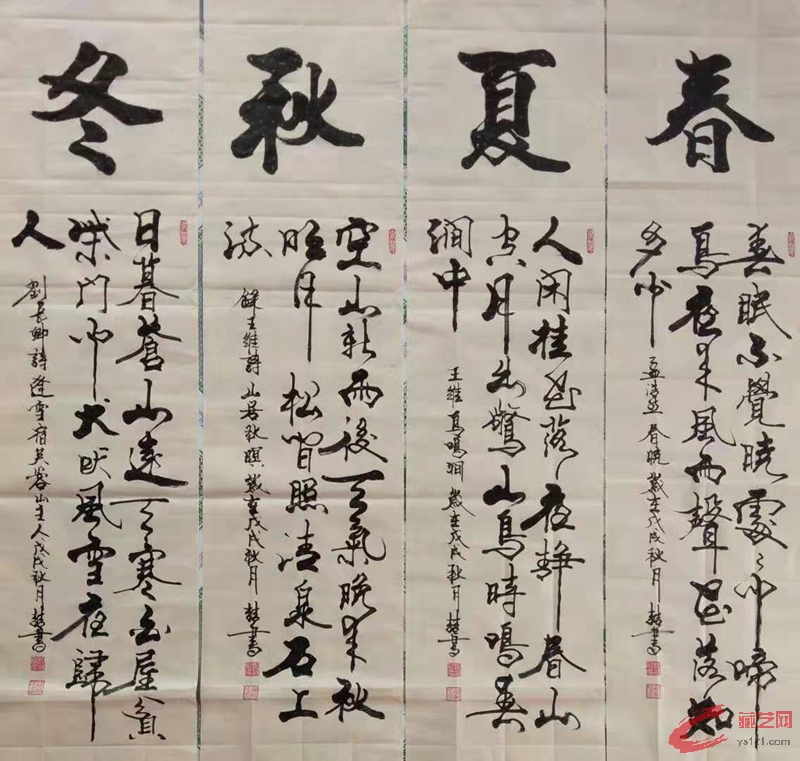 春
春眠不覺曉處々聞啼
鳥夜來風雨聲花落知
多少
孟浩然春曉歲在戊戌秋月書
夏
人閑桂花落夜靜春山
空月出驚山鳥時鳴春
澗中
王維鳥鳴澗歲在戊戌秋月書
秋
空山新雨後天氣晚來秋
明月松間照清泉石上
流
錄王維詩山居秋暝歲在戊戌秋月書
冬
日暮蒼山遠天寒白屋貧
柴門聞犬吠風雪夜歸
人
劉長卿詩逢雪宿芙蓉山主人戊戌秋月書
藏艺网